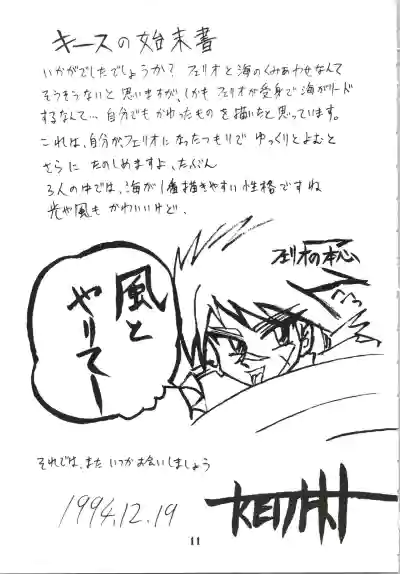 キースの始末書
いかがでしたでしょうか? フェリオと海のくみあわせなんて
そうそうないと思いますが、しかもフェリオが受身で海がリード
するなんて…自分でもかわったものを描いたと思っています。
これは、自分がフェリオになったつもりでゆっくりとよむと
さらにたのしめますよ、たぶん
3人の中では、海が1番描きやすい性格ですね
光や風もかわいいけど.
フェリオの本心
風と
やりてー
それでは、またいつかお会いしましょう
1994.12.19
11